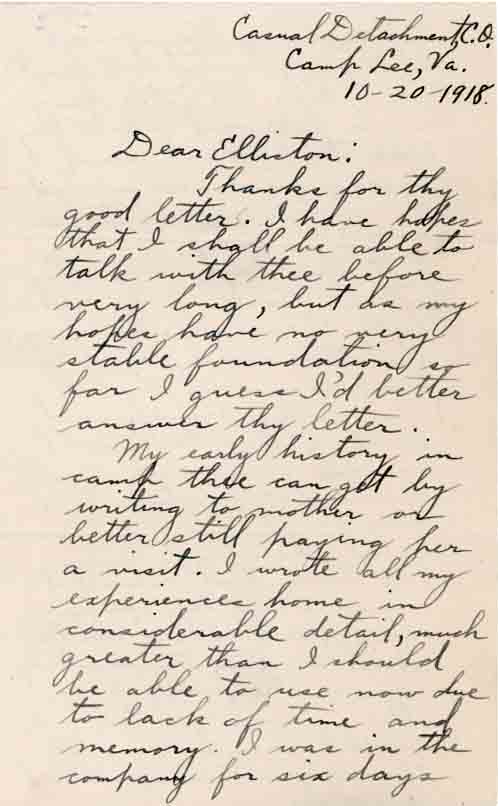 Casual Detachment, C.O.
Camp Lee, Va.
10-20-1918.
Dear Elliston:
Thanks for thy
good letter. I have hopes
that I shall be able to
talk with thee before
very long, but as my
hopes have no very
stable foundation so
far I guess I'd better
answer thy letter.
My early history in
camp thee can get by
writing to mother or
better still paying her
a visit. I wrote all my
experiences home in
considerable detail, much
greater than I should
be able to use now due
to lack of time and
memory. I was in the
company for six days